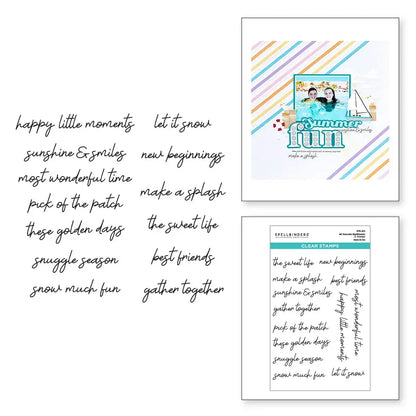 happy little moments
sunshine & smiles
most wonderful time
pick of the patch
these golden days
snuggle season
snow much fun
let it snow
new beginnings
make a splash
the sweet life
best friends
gather together
Summer
fun
sunshine & smiles
make a splash
SPELLBINDERS
CLEAR STAMPS
the sweet life
new beginnings
make a splash
best friends
sunshine & smiles
gather together
pick of the patch
these golden days
snuggle season
snow much fun
most wonderful time
happy little moments
let it snow